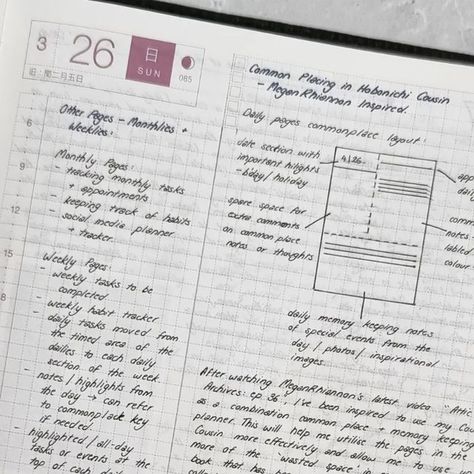 3 26 日 SUN 085
旧・閏二月五日
6
9
12
15
8
Other Pages - Monthlies +
Weeklies:
Monthly Pages:
- tracking monthly tasks
+ appointments
- keeping track of habits
- social media planner
+ tracker.
Weekly Pages:
- weekly tasks to be
completed
- weekly habit tracker
- daily tasks moved from
the timed area of the
dailies to each daily
section of the week.
- notes/highlights from
the day → can refer
to commonplace key
if needed.
- highlighted/all-day
tasks or events at the
top of each
Common Placing in Hobonichi Cousin
- MeganRhiannon Inspired.
Daily pages commonplace layout:
date section with
important hilights
- bday/holiday
4|26
spare space for
extra comments
on common place
notes or thoughts
app
dai
comm
notes
labled
colour
daily memory keeping notes
of special events from the
day / photos / inspirational
images.
After watching MeganRhiannon's latest video "
Archives: ep. 36. I've been inspired to use my
as a combination common place + memory keeping
planner. This will help me utilise the pages in the
Cousin more effectively and allow me to use
more of the 'wasted' space in
book that has